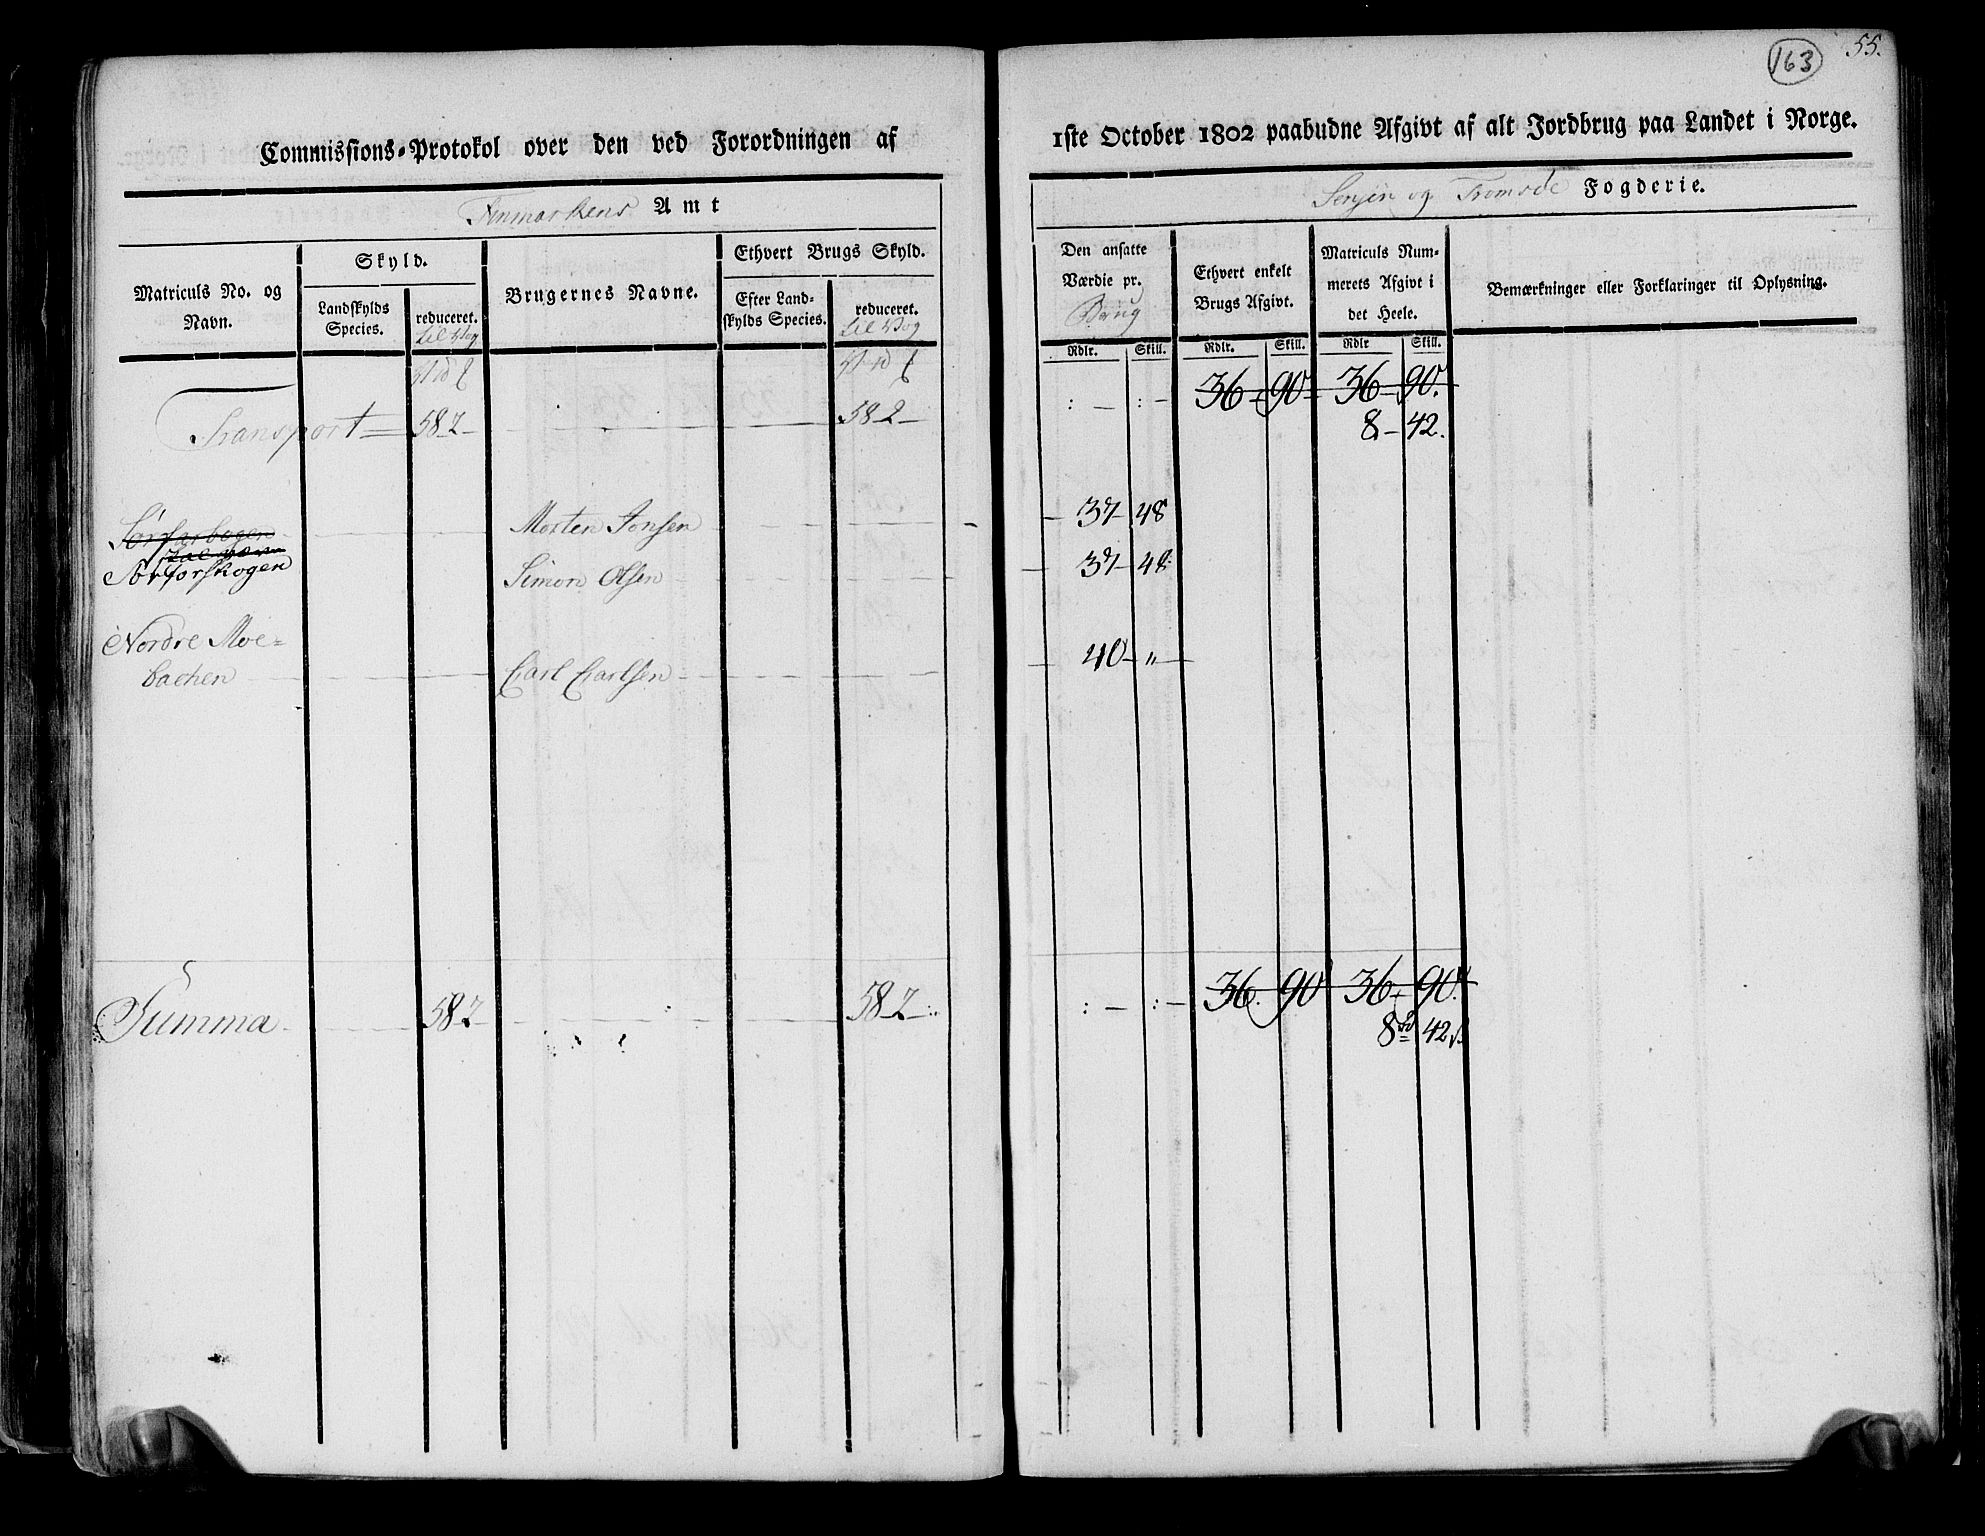 163
55.
Commissions-Protokol over den ved Forordningen af
1ste October 1802 paabudne Afgivt af alt Jordbrug paa Landet i Norge.
Finmarkens Amt
Senjen og Tromsöe Fogderie.
Matriculs No. og Navn.
Skyld.
Landskylds Species.
reduceret.
til Vog
Brugernes Navne.
Ethvert Brugs Skyld.
Efter Landskylds Species.
reduceret.
til Vog
Den ansatte Værdie pr.
Brug
Ethvert enkelt Brugs Afgivt.
Matriculs Nummerets Afgivt i det Heele.
Bemærkninger eller Forklaringer til Oplysning.
Rdlr. Skill. Rdlr. Skill. Rdlr Skill.
36 - 90 36 - 90.
Transport 58 2 58 2 8 - 42.
Sørfarbogen Morten Jonsen 37 - 48
Sørforskogen Simon Olsen 37 - 48
Nordre Moe=
bachen Carl Carlsen 40 - "
36. 90 36 - 90.
Summa 58 2 58 2 8 42